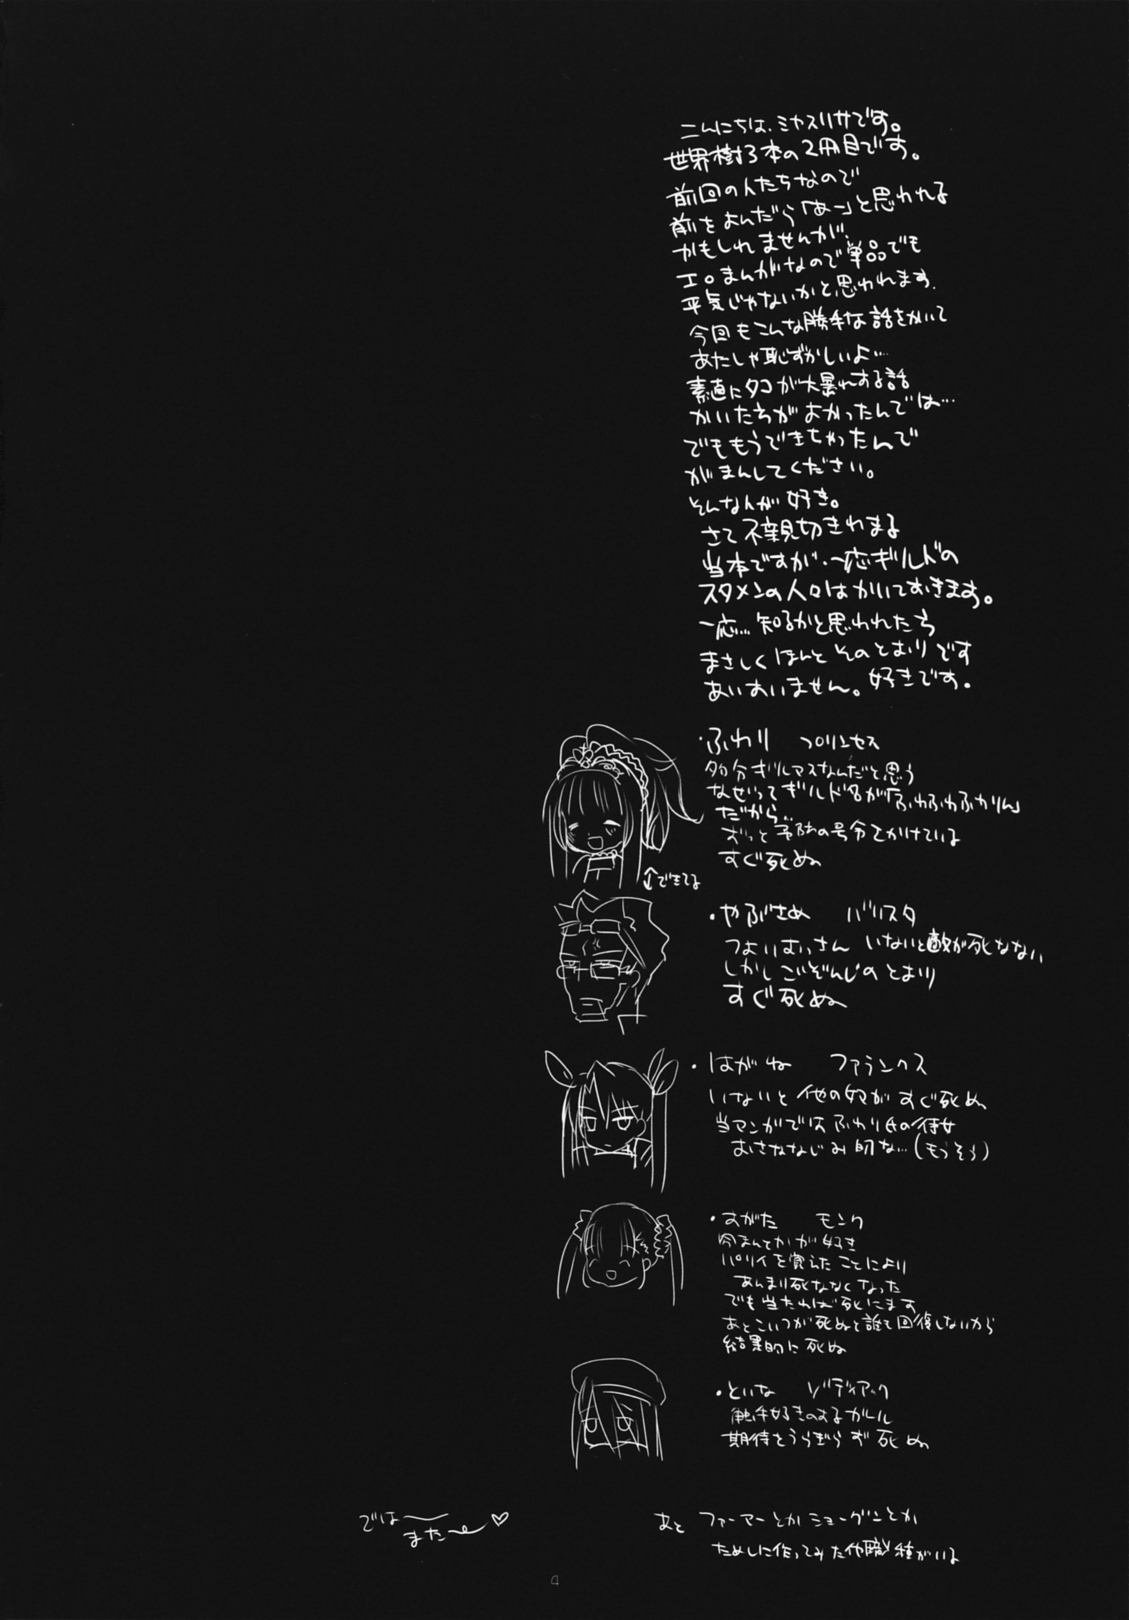 こんにちは、ミヤスリサです。
世界樹3本の2冊目です。
前回の人たちなので
前をよんだら「あー」と思われる
かもしれませんが、
エロまんがなので単品でも
平気じゃないかと思われます。
今回もこんな勝手な話をかいて
あたしゃ恥ずかしいよ…
素直にタコが大暴れする話
かいたらがよかったんでは…
でももうできちゃったんで
がまんしてください。
そんなんが好き。
さて不親切きわまる
当本ですが、一応ギルドの
スタメンの人々はかいておきます。
一応…知るかと思われたら
まさしくほんとそのとおりです
あいすいません。好きです。
・ふわり プリンセス
多分ギルマスなんだと思う
なぜってギルド名が「ふわふわふわりん」
だから…
ずっと予防の号令をかけている
すぐ死ぬ
↑↓できてる
・やぶさめ バリスタ
つよいおっさん いないと敵が死なない
しかしごぞんじのとおり
すぐ死ぬ
・はがね ファランクス
いないと他の奴がすぐ死ぬ
当マンガではふわり氏の侍女
おさななじみ的な…(もうそう)
・すがた モンク
パリイを覚えたことにより
あんまり死ななくなった
でも当たれば死にます
あとこいつが死ぬと誰も回復しないから
結果的に死ぬ
・といな ゾディアック
触手好きのするガール
期待をうらぎらず死ぬ
あと ファーマーとかショーグンとか
ためしに作ってみた他職種がいる
では〜
また〜♡